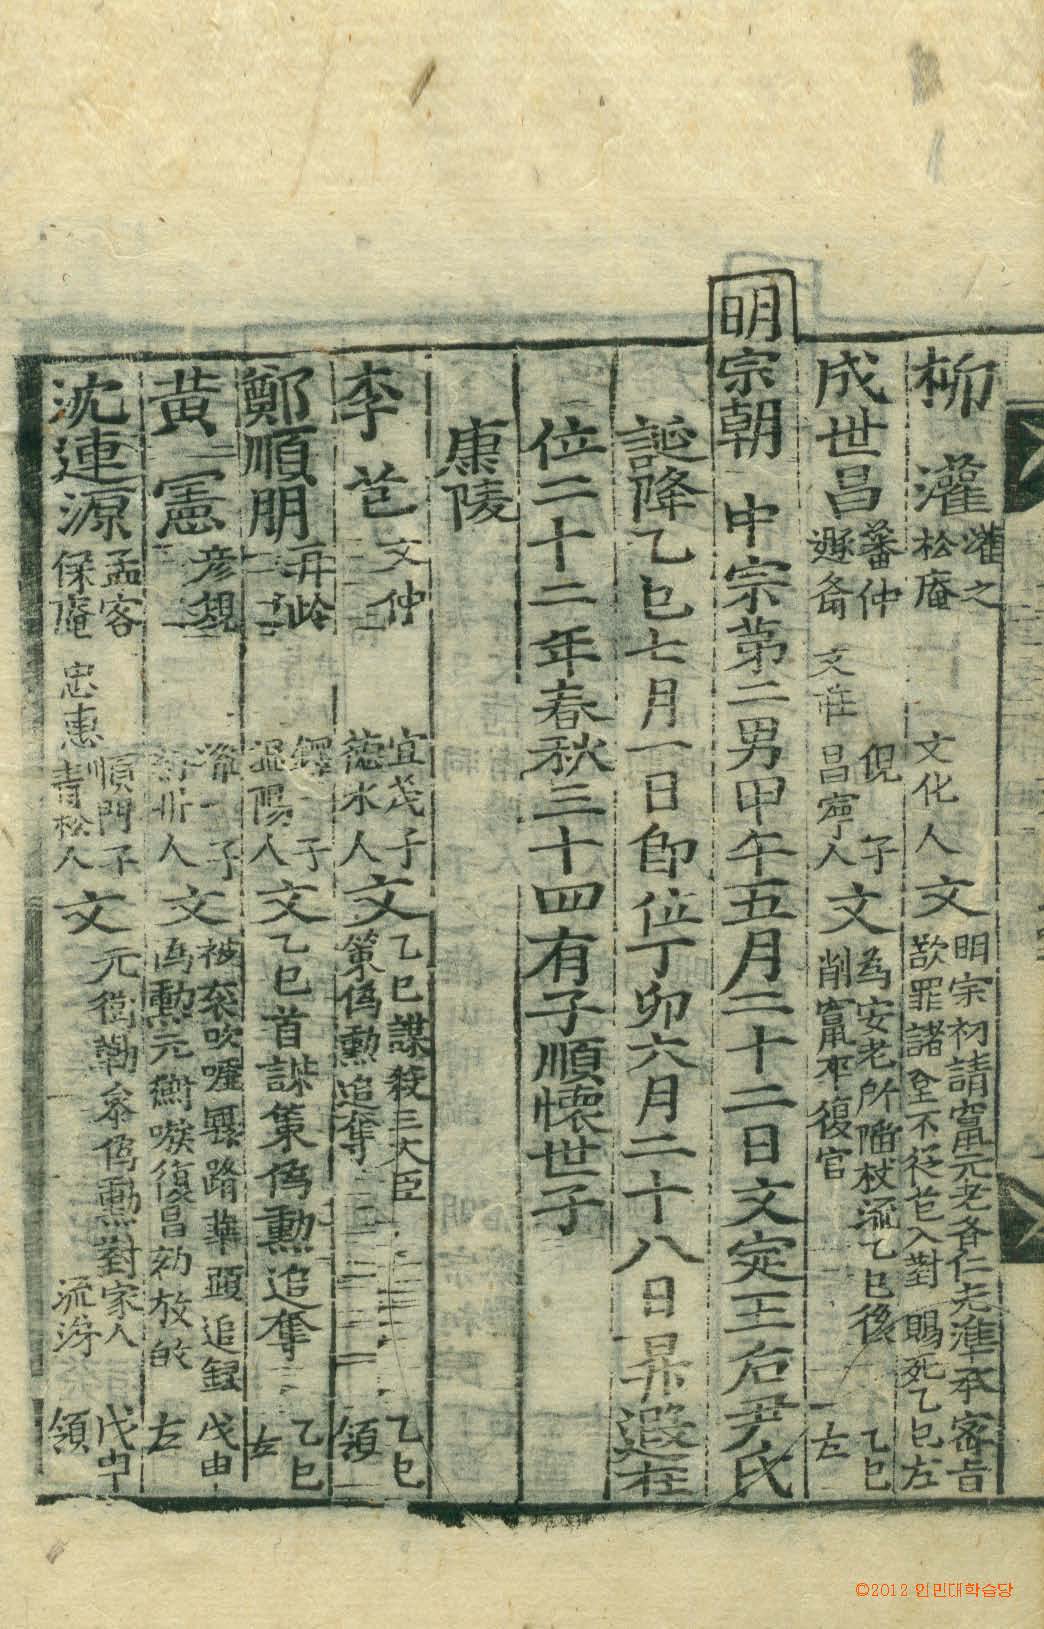 柳灌 灌之 松庵 文化人 文 明宗初請竄元老各仁老準承密旨 歆罪諸 不從芑入對 賜死乙巳左
成世昌 蕃仲 遯齋 文莊 俔子 昌寧人 文 為安老所陷杖流乙巳後 削竄卒復官 乙巳 左
明宗朝 中宗第二男甲午五月二十二日文定王后尹氏
誕降乙巳七月一日卽位丁卯六月二十八日昇遐在
位二十二年春秋三十四有子順懷世子
康陵
李芑 文仲 宜茂子 德水人 文 乙巳謀殺三大臣 策僞勳追奪 乙巳 領
鄭順朋 耳齡 鐸子 溫陽人 文 乙巳首謀策僞勳追奪 乙巳 左
黃憲 彦規 子 人 文 爲勳元衡嗾復昌劾放 追録 戊申 左
沈連源 孟容 保庵 忠惠 順門子 靑松人 文 元衡勒參僞勳對家人 流涕 戊申 領
©2012 인민대학습당